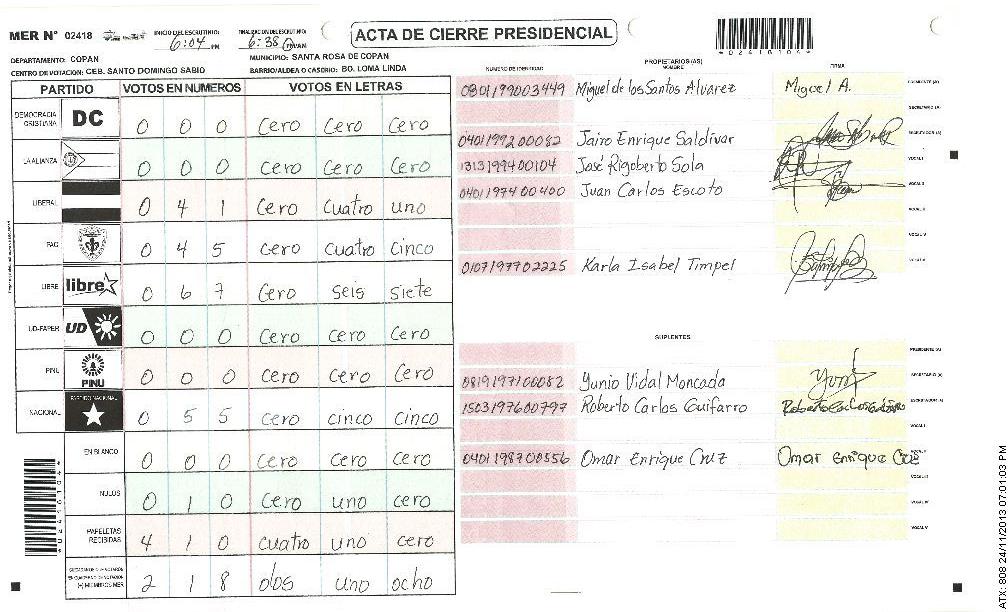 MER N° 02418 INICIO DEL ESCRUTINIO: 6:04 PM FINALIZACION DEL ESCRUTINIO: 6:38 PM/AM ACTA DE CIERRE PRESIDENCIAL
DEPARTAMENTO: COPAN MUNICIPIO: SANTA ROSA DE COPAN
CENTRO DE VOTACION: CEB. SANTO DOMINGO SABIO BARRIO/ALDEA O CASERIO: BO. LOMA LINDA
PARTIDO VOTOS EN NUMEROS VOTOS EN LETRAS
DEMOCRACIA CRISTIANA DC 0 0 0 Cero Cero Cero
LA ALIANZA 0 0 0 Cero Cero Cero
LIBERAL 0 4 1 Cero Cuatro uno
PAC 0 4 5 Cero Cuatro Cinco
LIBRE libre 0 6 7 Cero seis siete
UD-FAPER UD 0 0 0 Cero Cero Cero
PINU PINU 0 0 0 Cero Cero Cero
NACIONAL PARTIDO NACIONAL 0 5 5 Cero cinco Cinco
EN BLANCO 0 0 0 Cero Cero Cero
NULOS 0 1 0 Cero uno cero
PAPELETAS RECIBIDAS 4 1 0 Cuatro uno cero
(+) MIEMBROS MER 2 1 8 dos uno ocho
*02418104*
NUMERO DE IDENTIDAD PROPIETARIOS (AS) NOMBRE FIRMA
0301199003449 Miguel de los Santos Alvarez Miguel A. PRESIDENTE (A)
SECRETARIO (A)
0401199200082 Jairo Enrique Saldivar ESCRUTADOR (A)
1313199400104 José Rigoberto Sola VOCAL I
0401197400400 Juan Carlos Escoto VOCAL II
VOCAL III
VOCAL IV
0107197702225 Karla Isabel Timpel VOCAL V
SUPLENTES
PRESIDENTE (A)
0819197100082 Yunio Vidal Moncada SECRETARIO (A)
1503197600797 Roberto Carlos Guifarro ESCRUTADOR (A)
VOCAL I
0401198700556 Omar Enrique Cruz Omar Enrique Cruz VOCAL II
VOCAL III
VOCAL IV
VOCAL V
ATX: 808 24/11/2013 07:01:03 PM